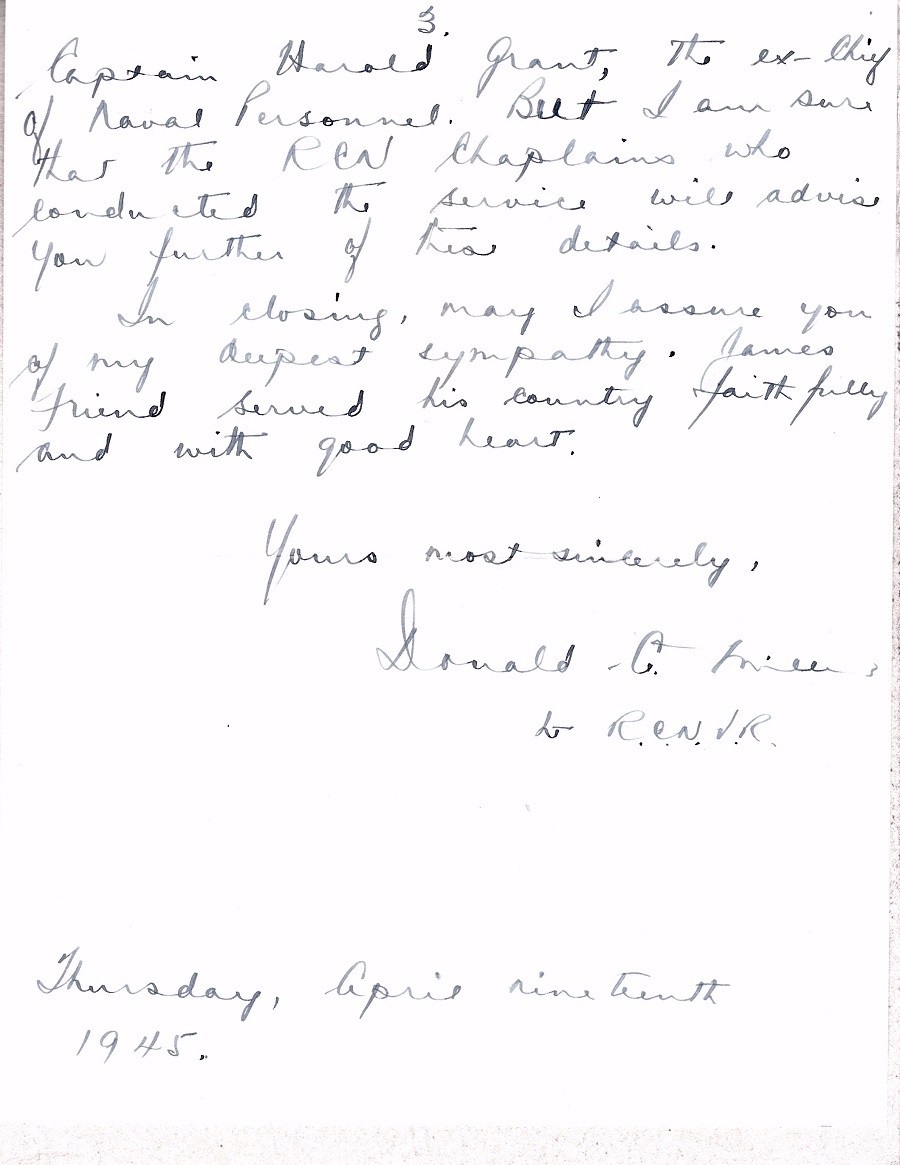 3.
Captain Harold Grant, the ex-Chief
of Naval Personnel. But I am sure
that the RCN Chaplains who
conducted the service will advise
you further of this details.
In closing, may I assure you
of my deepest sympathy. James
Friend served his country faithfully
and with good heart.
Yours most sincerely,
Donald C.
R.C.N.V.R.
Thursday, April nineteenth
1945.